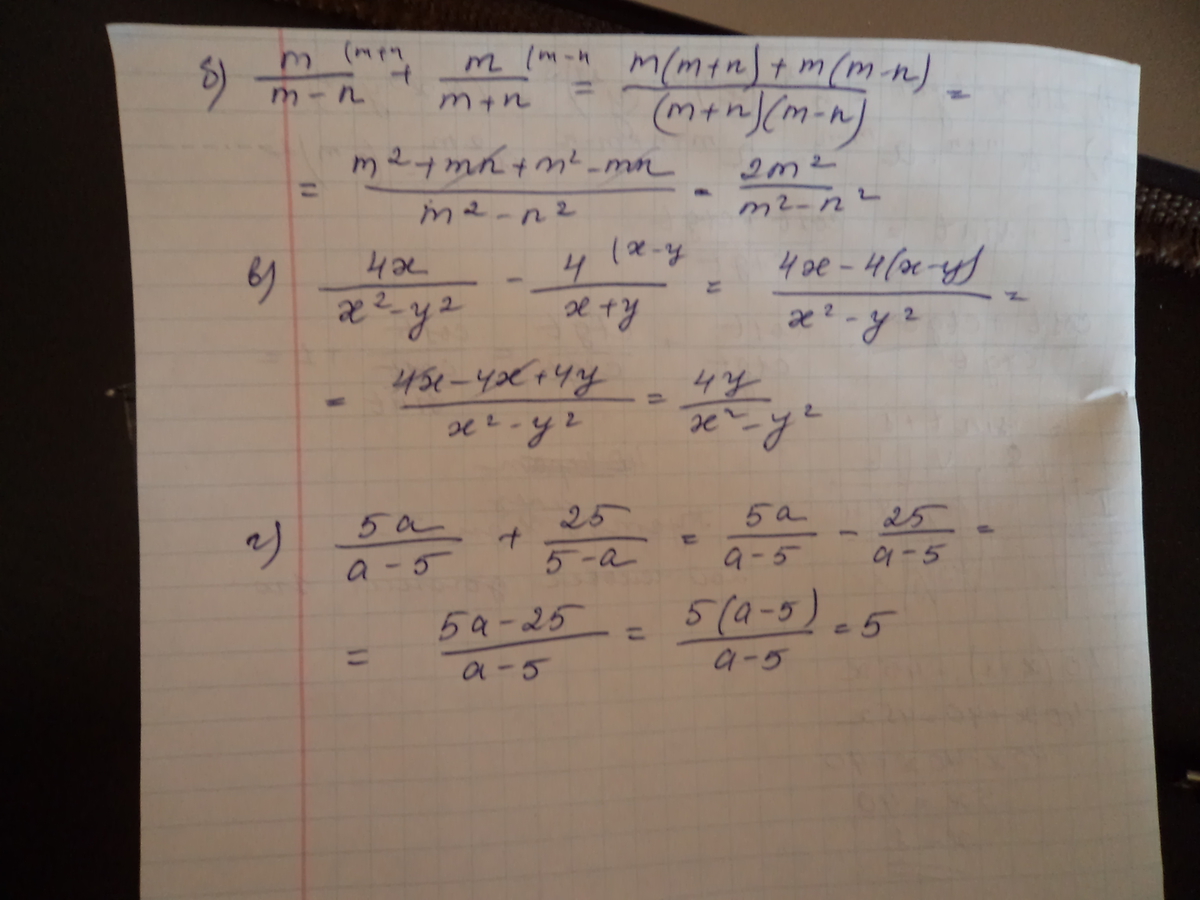 б) m/(m-n) (m+n + m/(m+n) (m-n = (m(m+n)+m(m-n))/((m+n)(m-n)) =
= (m²+mn+m²-mn)/(m²-n²) = 2m²/(m²-n²)
в) 4x/(x²-y²) - 4/(x+y) (x-y = (4x-4(x-y))/(x²-y²) =
= (4x-4x+4y)/(x²-y²) = 4y/(x²-y²)
г) 5a/(a-5) + 25/(5-a) = 5a/(a-5) - 25/(a-5) =
= (5a-25)/(a-5) = 5(a-5)/(a-5) = 5